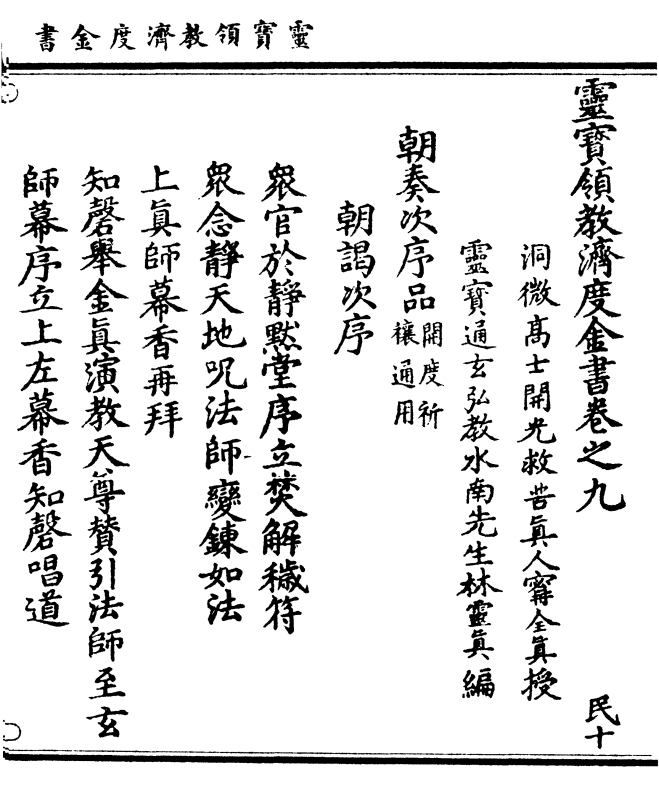 靈寶領教濟度金書
靈寶領教濟度金書卷之九
民十
洞微高士開光救苦眞人甯全眞授
靈寶通玄弘教水南先生林靈眞編
朝奏次序品
開度祈
禳通用
朝謁次序
眾官於靜默堂序立焚解穢符
眾念靜天地呪法師變鍊如法
上眞師幕香再拜
知磬舉金眞演教天尊贊引法師至玄
師幕序立上左幕香知磬唱道